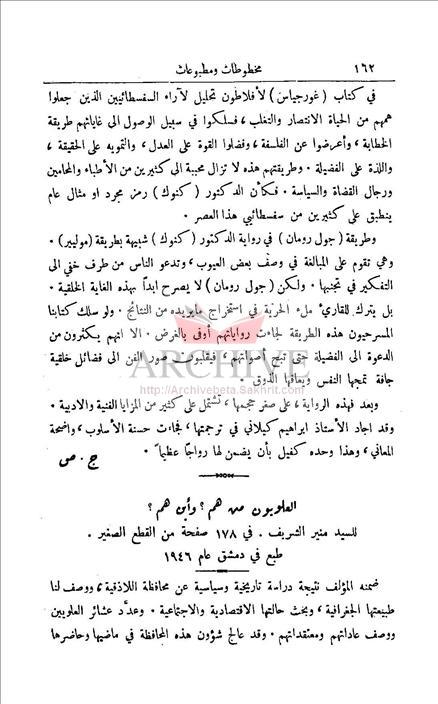 ١٦٢ مخطوطات ومطبوعات
في كتاب ( غورجياس ) لأفلاطون تحليل لآراء السفسطائيين الذين جعلوا
همهم من الحياة الانتصار والتغلب ، فسلكوا في سبيل الوصول الى غاياتهم طريقة
الخطابة ، وأعرضوا عن الفلسفة ، وفضلوا القوة على العدل ، والتمويه على الحقيقة ،
واللذة على الفضيلة . وطريقتهم هذه لا تزال محببة الى كثيرين من الأطباء والمحامين
ورجال القضاة والسياسة . فكأن الدكتور ( كنوك ) رمز مجرد او مثال عام
ينطبق على كثيرين من سفسطائيي هذا العصر .
وطريقة ( جول رومان ) في رواية الدكتور ( كنوك ) شبيهة بطريقة ( موليير ) .
وهي تقوم على المبالغة في وصف بعض العيوب ، وتدعو الناس من طرف خفي الى
التفكير في تجنبها . ولكن ( جول رومان ) لا يصرح ابداً بهذه الغاية الخلقية .
بل يترك للقارئ ملء الحرية في استخراج مايريده من النتائج . ولو سلك كتابنا
المسرحيون هذه الطريقة لجاءت رواياتهم أوفى بالغرض . الا انهم يكثرون من
الدعوة الى الفضيلة حتى تبح أصواتهم ، فيقلبون صور الفن الى فضائل خلقية
جافة تمجها النفس ويعافها الذوق .
ARCHIVE
http://Archivebeta.Sakhrit.com
وبعد فهذه الرواية ، على صغر حجمها ، تشتمل على كثير من المزايا الفنية والادبية .
وقد اجاد الأستاذ ابراهيم كيلاني في ترجمتها ، فجاءت حسنة الأسلوب ، واضحة
المعاني ، وهذا وحده كفيل بأن يضمن لها رواجاً عظيماً . ج . ص
العلويون من هم ؟ وأين هم ؟
للسيد منير الشريف . في ١٧٨ صفحة من القطع الصغير .
طبع في دمشق عام ١٩٤٦
ضمنه المؤلف نتيجة دراسة تاريخية وسياسية عن محافظة اللاذقية ، ووصف لنا
طبيعتها الجغرافية ، وبحث حالتها الاقتصادية والاجتماعية . وعدَّد عشائر العلويين
ووصف عاداتهم ومعتقداتهم . وقد عالج شؤون هذه المحافظة في ماضيها وحاضرها